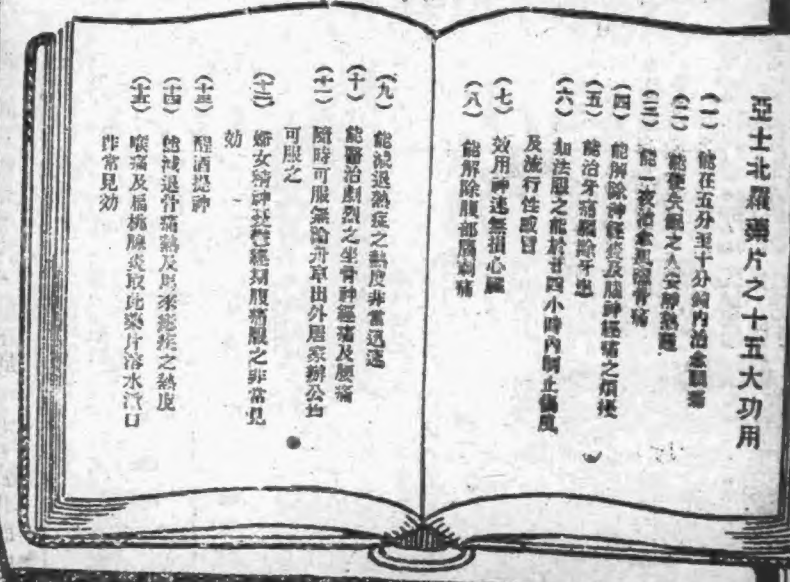 亞士北羅藥片之十五大功用
(一) 能在五分至十分鐘內治愈頭痛
(二) 能使失眠之人安靜熟睡
(三) 能一夜治愈風濕骨痛
(四) 能解除神經炎及腦神經痛之煩擾
(五) 能治牙痛驅除牙患
(六) 如法服之能於廿四小時內制止傷風
及流行性感冒
(七) 效用神速無損心臟
(八) 能解除腹部痛刺痛
(九) 能減退熱症之熱度非常迅速
(十) 能醫治劇烈之坐骨神經痛及腰痛
(十一) 隨時可服無論舟車出外居家辦公均
可服之
(十二) 婦女精神經期腹痛服之非常見
効
(十三) 醒酒提神
(十四) 能減退骨痛熱及馬來瘧疾之熱度
(十五) 喉痛及扁桃腺炎取此藥片溶水漱口
非常見効